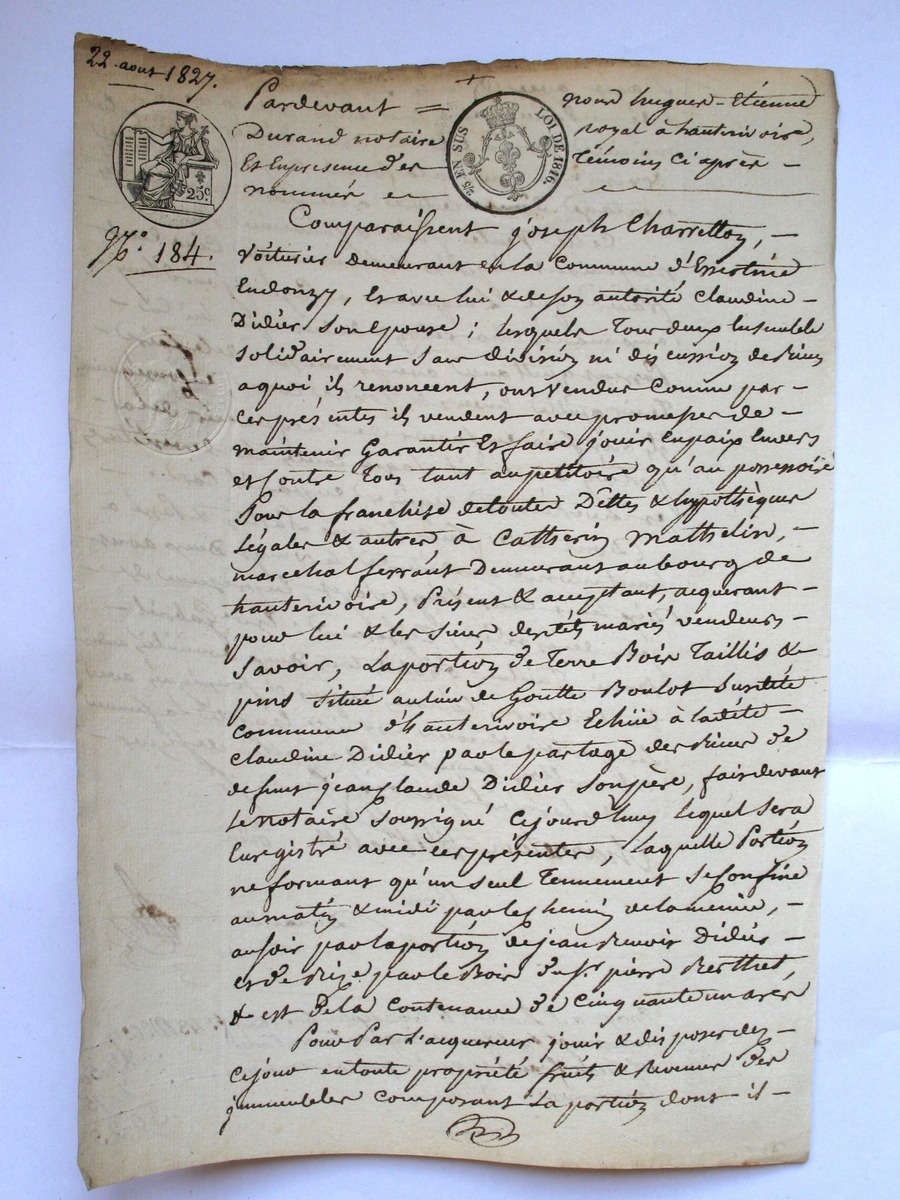 22 aout 1827.
Pardevant = nous hugues-Etienne
Durand notaire royal à hauterivoire,
Et En presence des témoins Ci après -
nommés
25 EN SUS
LOI DE 1816.
25c
N.° 184.
Comparaissent joseph Charretton, -
Voiturier Demeurant en la Commune d'
Endonzy, Et avec lui & de son autorité Claudine -
Didier Son Epouse ; lesquels Tous deux Ensemble
Solidairement Sans division ni discussion de biens
a quoi ils renoncent, ont Vendus Comme par -
Ces présentes ils vendent avec promesses de -
maintenir Garantir Et faire jouir En paix Envers
et Contre Tous tant au petitoire qu'au possessoire
Sous la franchise de toutes Dettes & hypothèques
Légales & autres à Catherin Mathelin, -
marechal ferrant Demeurant au bourg de
hauterivoire, Présent & acceptant, acquerant -
pour lui & les Siens desdits mariés vendeurs -
Savoir, La portion de Terre Bois Taillis &
pins Située au lieu de Goutte Boulot Surdite
Commune d'hauterivoire Echüe à ladite -
Claudine Didier par le partage des biens de
defunt jean Claude Didier Son père, fait devant
Le notaire Soussigné Cejourd'huy Lequel Sera
Enregistré avec ces présentes, Laquelle Portion
ne formant qu'un Seul Tennement Se Confine
au matin & midi par le Chemin de la 
au soir par la portion de jean Didier -
et de Bize par le Bois du Sr. pierre Berthet,
& est de la Contenance de Cinquante un ares
Pour Par L'acquereur jouir & disposer dez -
Cejour en toute propriété fruits & Revenus des
jmmeubles Composant La portion dont il -